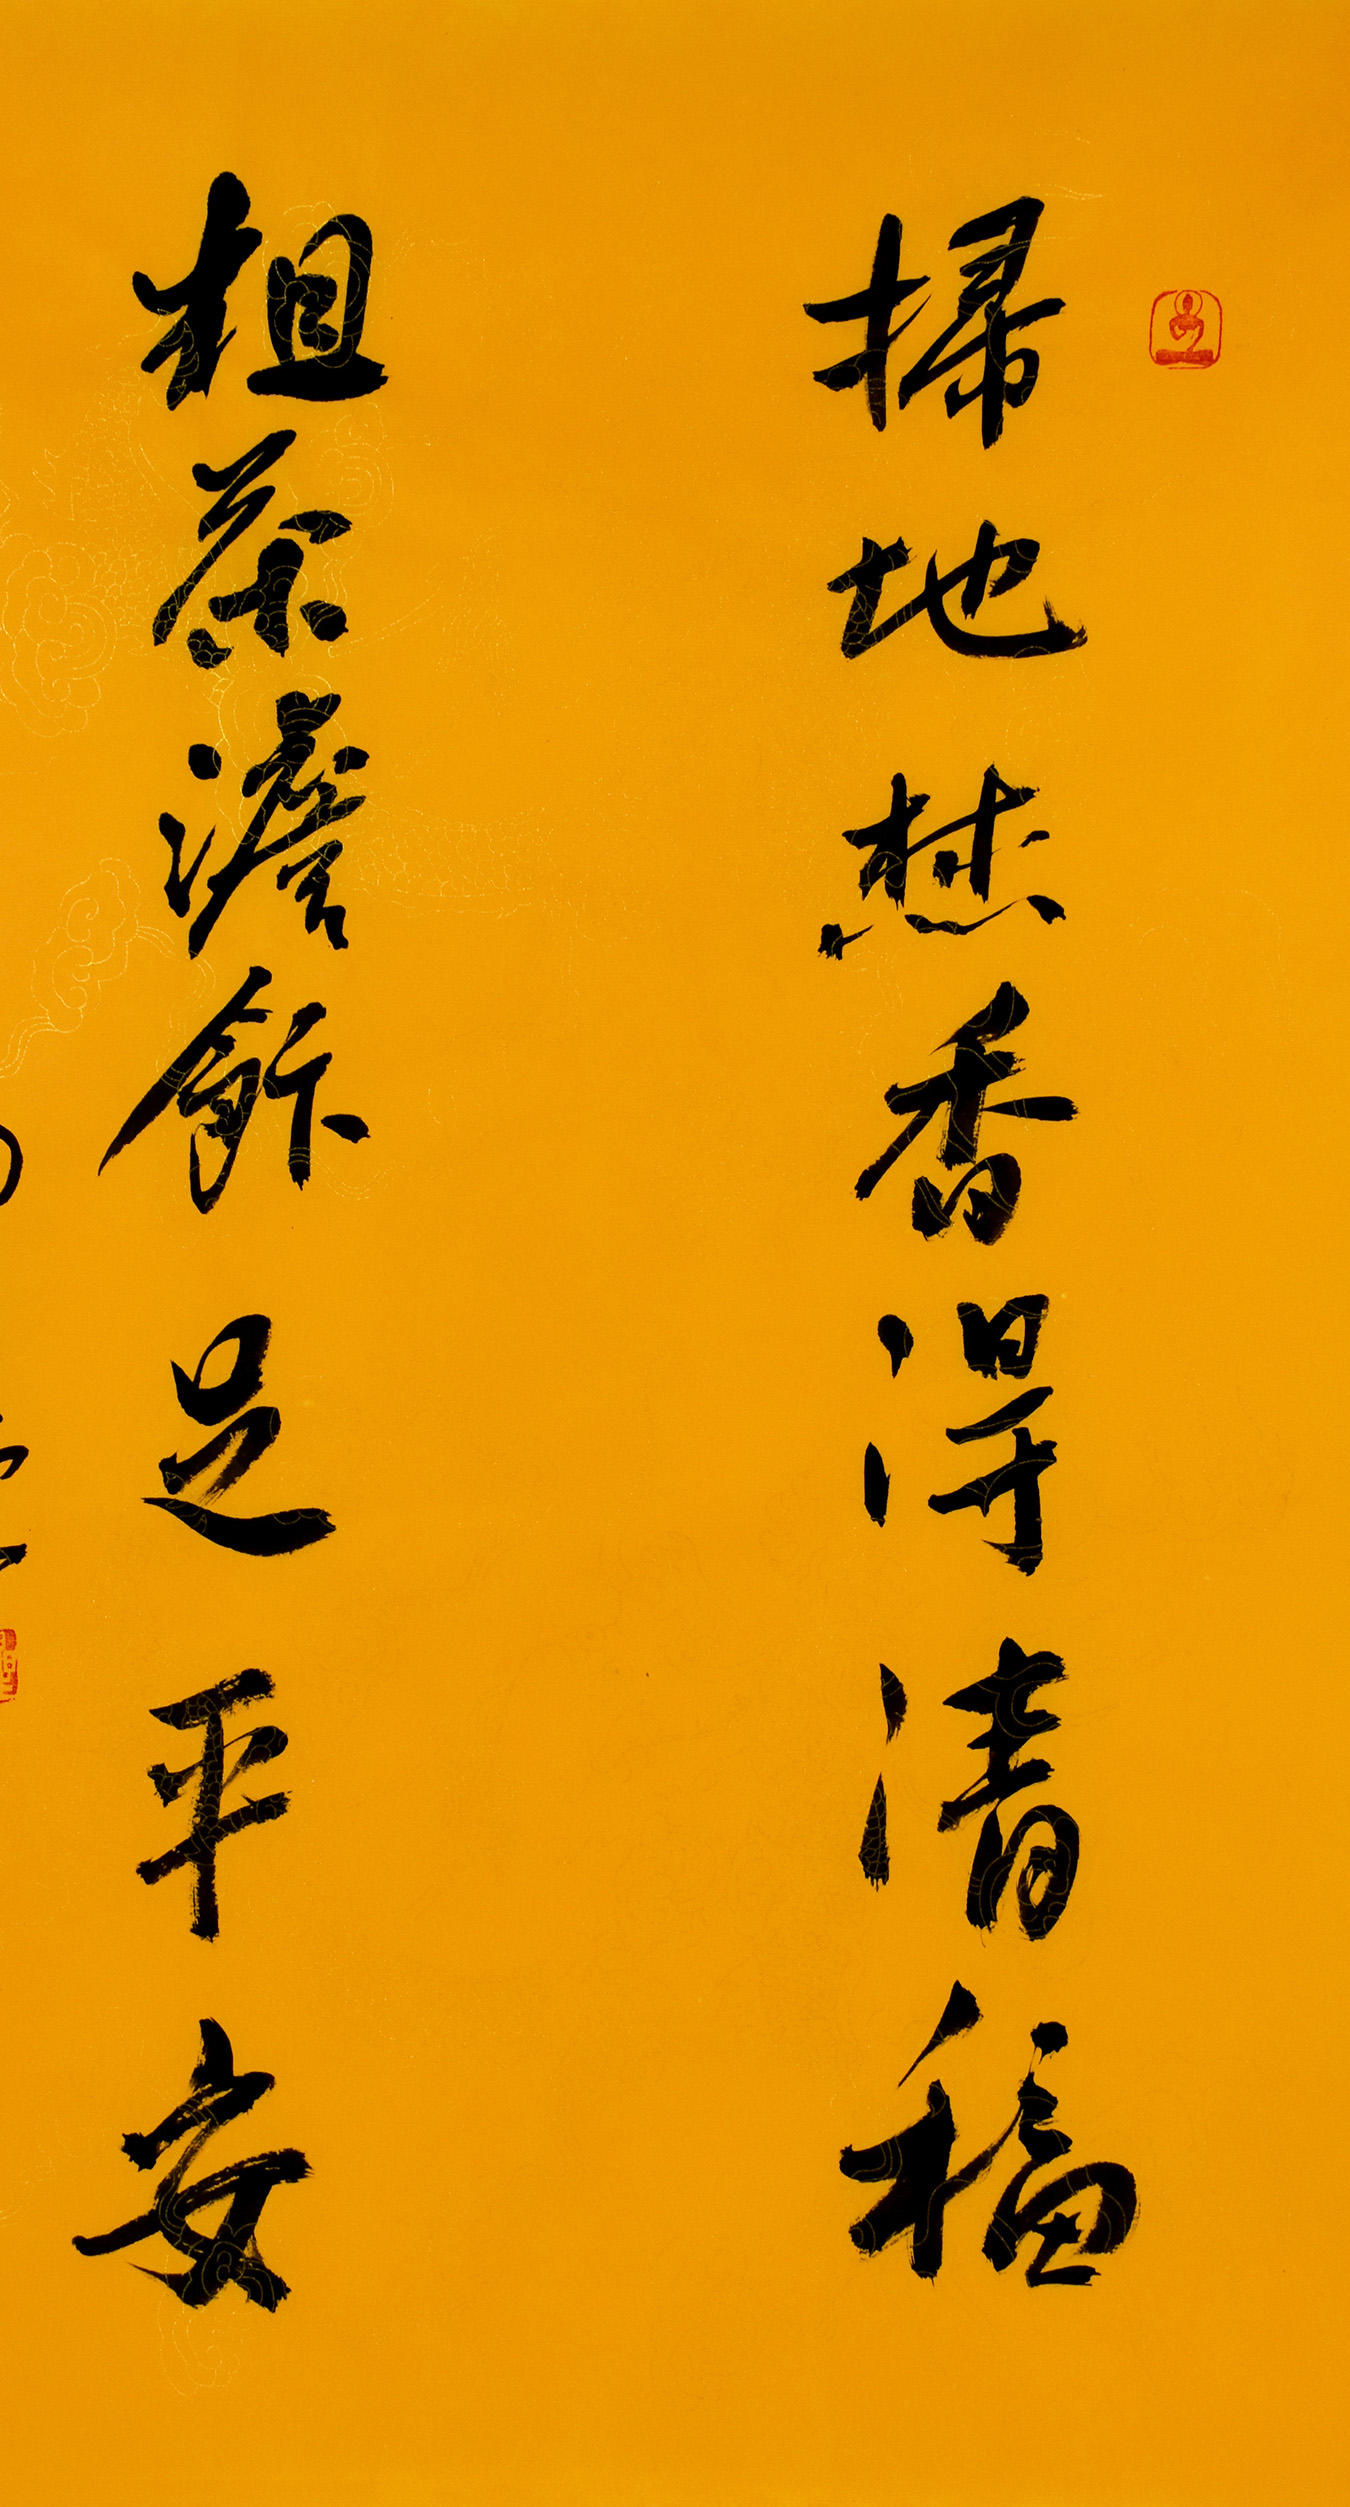 掃地焚香得清福
粗茶澹飯足平安